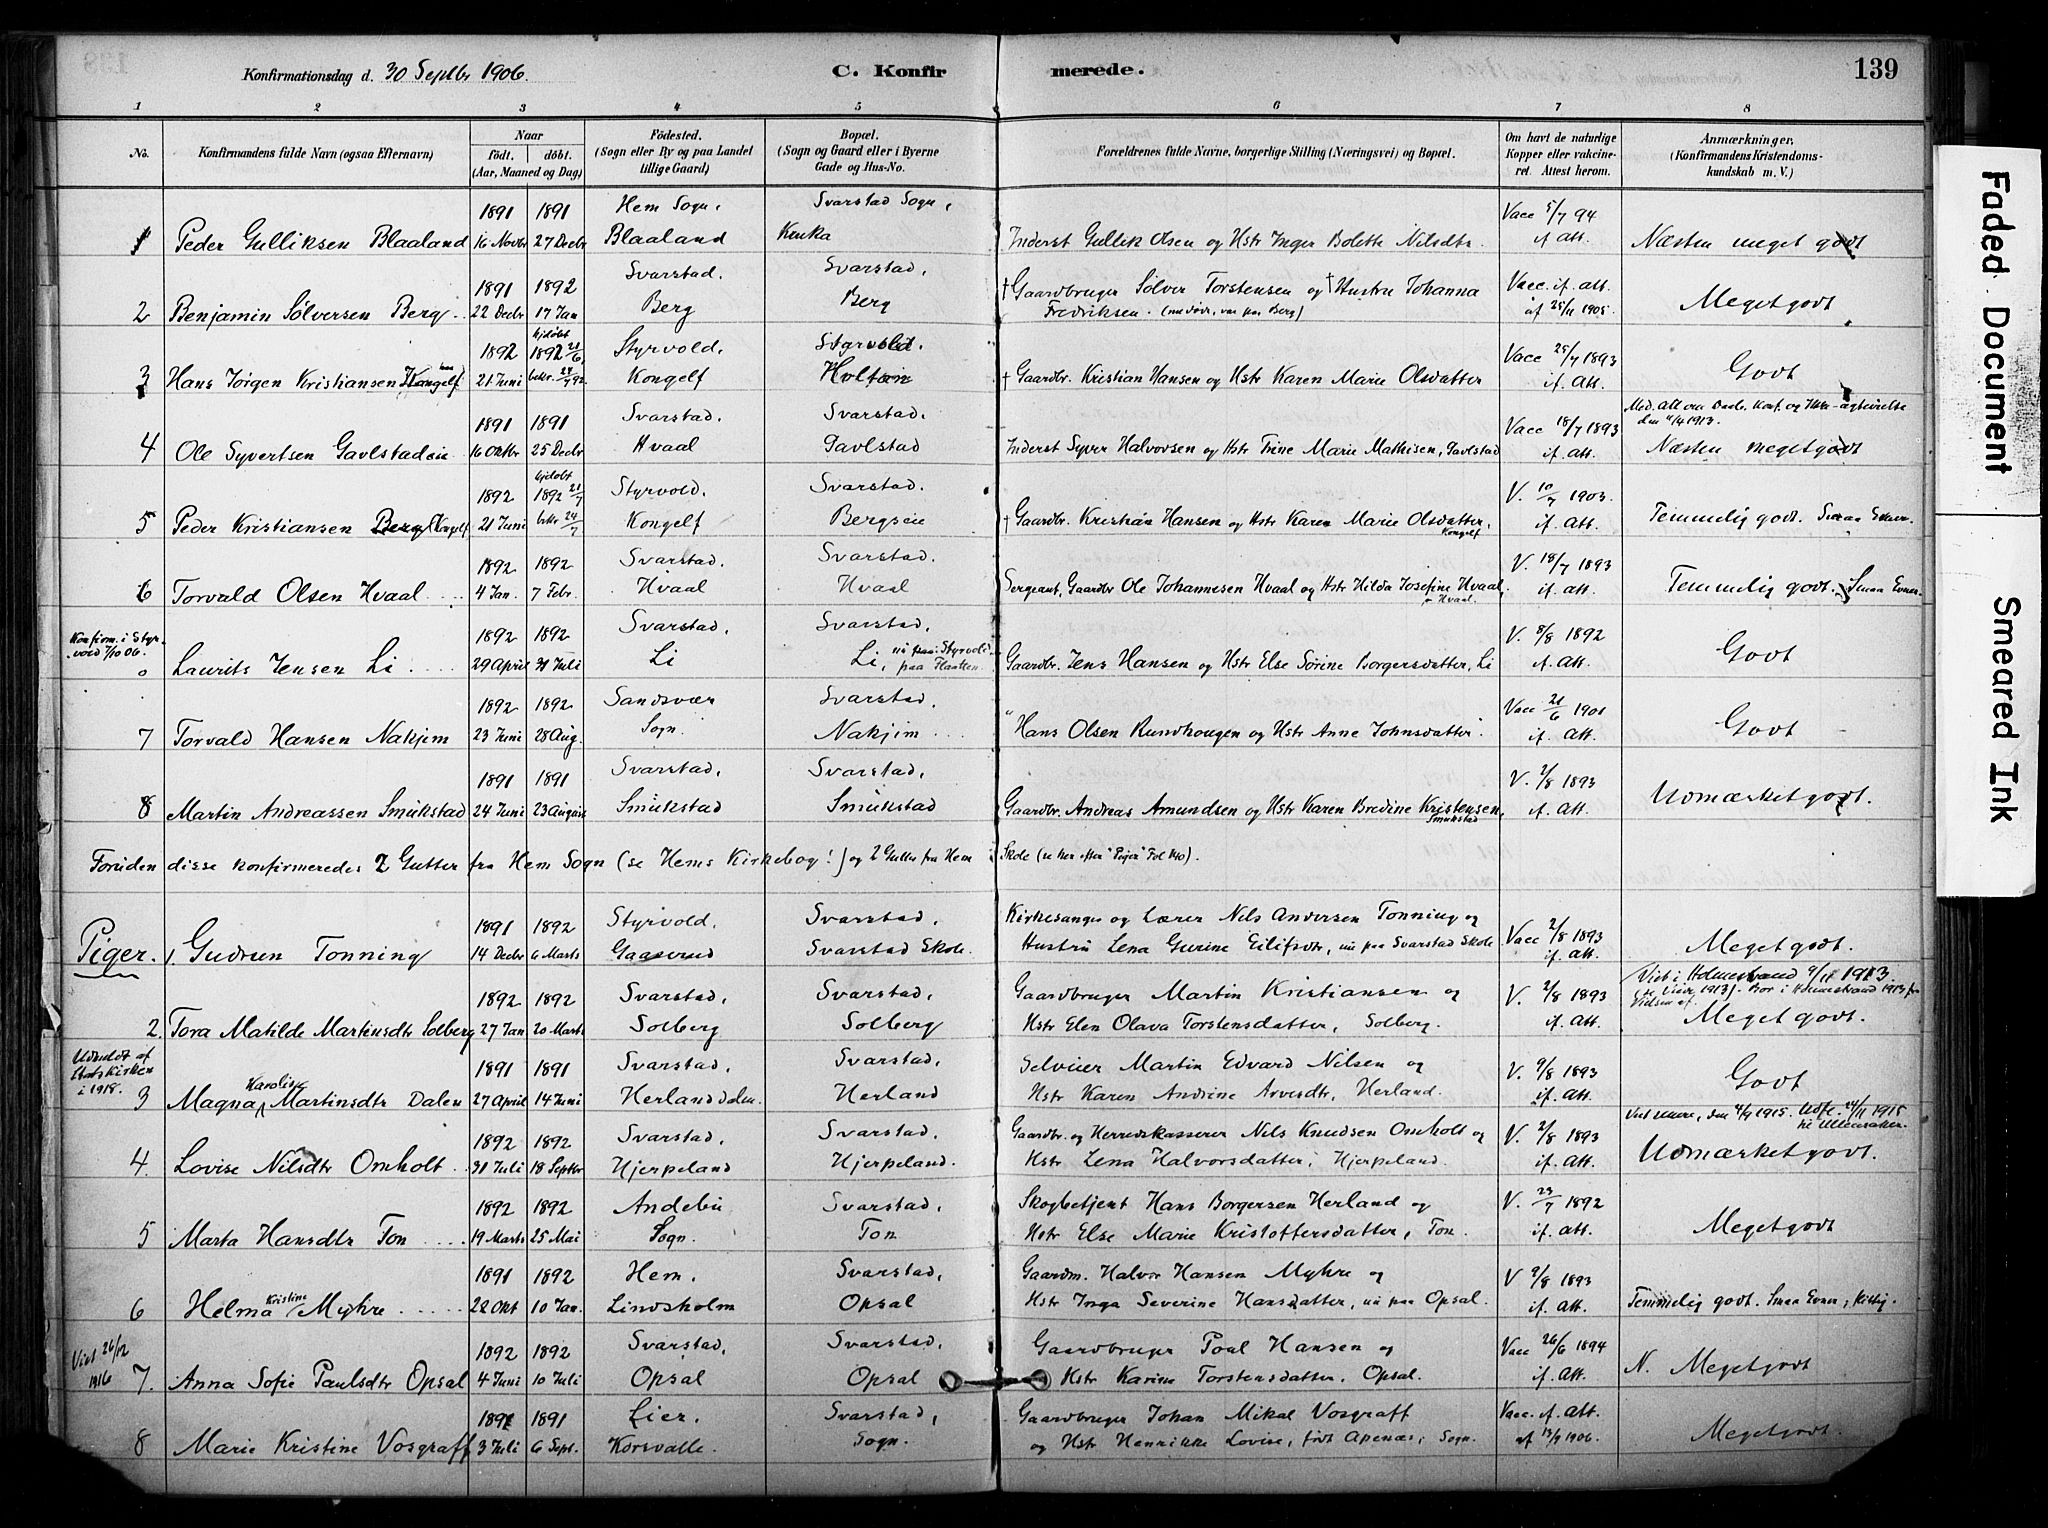 Konfirmationsdag d. 30 Septbr 1906.
C. Konfirmerede.
139
1 2 3 4 5 6 7 8
No.
Konfirmandens fulde Navn (ogsaa Efternavn)
Naar
født. døbt.
(Aar, Maaned og Dag)
Fødested.
(Sogn eller By og paa Landet
tillige Gaard)
Bopæl.
(Sogn og Gaard eller i Byerne
Gade og Hus-No.
Forældrenes fulde Navne, borgerlige Stilling (Næringsvei) og Bopæl.
Om havt de naturlige
Kopper eller vakcine-
ret. Attest herom.
Anmærkninger.
(Konfirmandens Kristendoms-
kundskab m. V.)
1891 1891 Hem Sogn. Svarstad Sogn, Vacc 5/7 94
1 Peder Gulliksen Blaaland 16 Novbr 27 Decbr Blaaland Kruka Inderst Gullik Olsen og Hstr Inger Bolette Nilsdtr. if. Att. Næsten meget godt
1891 1892 Svarstad. Svarstad, † Gaardbruger Sølver Torstensen og † Hustru Johanna Vacc. if. att.
2 Benjamin Sølversen Berg 22 Decbr 17 Jan Berg Berg Fredriksen. (nu døde, var paa Berg) af 25/11 1905 Meget godt
hjdøbt
1892 1892 21/6 Styrvold. Styrvold. Vacc 25/7 1893
3 Hans Jørgen Kristiansen Kongelf 21 Juni bekr. 24/7 92 Kongelf Holtan † Gaardbr. Kristian Hansen og Hstr Karen Marie Olsdatter if. Att. Godt
1891 1891 Svarstad. Svarstad. Vacc 18/7 1893 Med. Att om Daab. Konf. og
den 4/4 1913.
4 Ole Syvertsen Gavlstadeie 16 Oktbr 25 Decbr Hvaal Gavlstad Inderst Syver Halvorsen og Hstr Trine Marie Mathisen, Gavlstad if. Att. Næsten meget godt
hjdøbt
1892 1892 21/7 Styrvold. Svarstad. V. 10/7 1903.
5 Peder Kristiansen Berg Kongelf 21 Juni bekr 24/7 Kongelf Bergseie † Gaardbr. Kristian Hansen og Hstr Karen Marie Olsdatter, Kongelf if. Att. Temmelig godt. Smaa Evner.
1892 1892 Svarstad. Svarstad. V. 18/7 1893
6 Torvald Olsen Hvaal 4 Jan. 7 Febr. Hvaal Hvaal Sergeant, Gaardbr Ole Johannesen Hvaal og Hstr Hilda Josefine Hvaal, Hvaal. if. Att. Temmelig godt. Smaa Evner.
Konfirm. i Styr-
vold 7/10 06.
1892 1892 Svarstad, Svarstad. V. 8/8 1892
o Laurits Jensen Li 29 April 31 Juli Li Li, nu paa Styrvold Gaardbr. Jens Hansen og Hstr Else Sørine Borgersdatter, Li if. Att. Godt
1892 1892 Sandsvær Svarstad. Vacc 21/6 1901
7 Torvald Hansen Nakjim 23 Juni 28 Aug. Sogn. Nakjim Hans Olsen Rundhaugen og Hstr Anne Johnsdatter. if. Att. Godt
1891 1891 Svarstad, Svarstad, V. 2/8 1893
8 Martin Andreassen Smukstad 24 Juni 23 August Smukstad Smukstad Gaardbr. Andreas Amundsen og Hstr Karen Bredine Kristensen, Smukstad if. Att. Udmærket godt.
Foruden disse konfirmeredes 2 Gutter fra Hem Sogn (se Hems Kirkebog!) og 2 Gutter fra Hem Skole (se her efter "Piger" Fol 140).
1891 1892 Styrvold. Svarstad, Kirkesanger og Lærer Nils Andersen Tonning og Vacc 2/8 1893
Piger. 1. Gudrun Tonning 14 Decbr 6 Marts Gaaserud Svarstad Skole. Hustru Lena Gurine Eilifsdtr, nu paa Svarstad Skole if. Att. Meget godt.
1892 1892 Svarstad, Svarstad, Gaardbruger Martin Kristiansen og V. 2/8 1893 Viet i Holmestrand 9/11 1913.
2. Tora Matilde Martinsdtr Solberg 27 Jan 20 Marts Solberg Solberg Hstr Elen Olava Torstensdatter, Solberg. if. Att. Meget godt.
Udmeldt af
Statskirken
i 1918.
1891 1891 Svarstad, Svarstad, Selveier Martin Edvard Nilsen og V. 9/8 1893 Godt
3 Magna Karoline Martinsdtr Dalen 27 April 14 Juni Herland Dalen. Herland Hstr Karen Andrine Arvesdtr, Herland. if. Att.
1892 1892 Svarstad, Svarstad, Gaardbr. og Herredskasserer Nils Knudsen Omholt og V. 2/8 1893 1915. Udfl. 24/11 1915
til Ullensaker.
4. Lovise Nilsdtr Omholt 31 Juli 18 Septbr Hjerpeland Hjerpeland. Hstr Lena Halvorsdatter, Hjerpeland. if. Att. Udmærket godt.
1892 1892 Andebu Svarstad, Skogbetjent Hans Borgersen Herland og V. 23/7 1892
5 Marta Hansdtr Ton 19 Marts 25 Mai Sogn. Ton Hstr Else Marie Kristoffersdatter, Ton. if. Att. Meget godt
1891 1892 Hem. Svarstad, Gaardm. Halvor Hansen Myhre og V 9/8 1893
6 Helma Kristine Myhre 22 Okt 10 Jan. Lindsholm Opsal Hstr Inga Severine Hansdatter, nu paa Opsal. if. Att. Temmelig godt. Smaa Evner, flittig.
Viet 26/12
1916
1892 1892 Svarstad, Svarstad, Gaardbruger Poal Hansen og Vacc 26/6 1894
7. Anna Sofie Paulsdtr Opsal 4 Juni 10 Juli Opsal Opsal Hstr Karine Torstensdatter, Opsal. if. Att. N. Meget godt
1891 1891 Lier. Svarstad, Gaardbruger Johan Mikal Vosgraff Vacc. if. Att.
8 Marie Kristine Vosgraff 3 Juli 6 Sept. Korsvalle. Sogn. og Hstr Henrikke Lovise, født Apenæs, Sogn. af 13/9 1906. Meget godt.
Faded Document
Smeared Ink